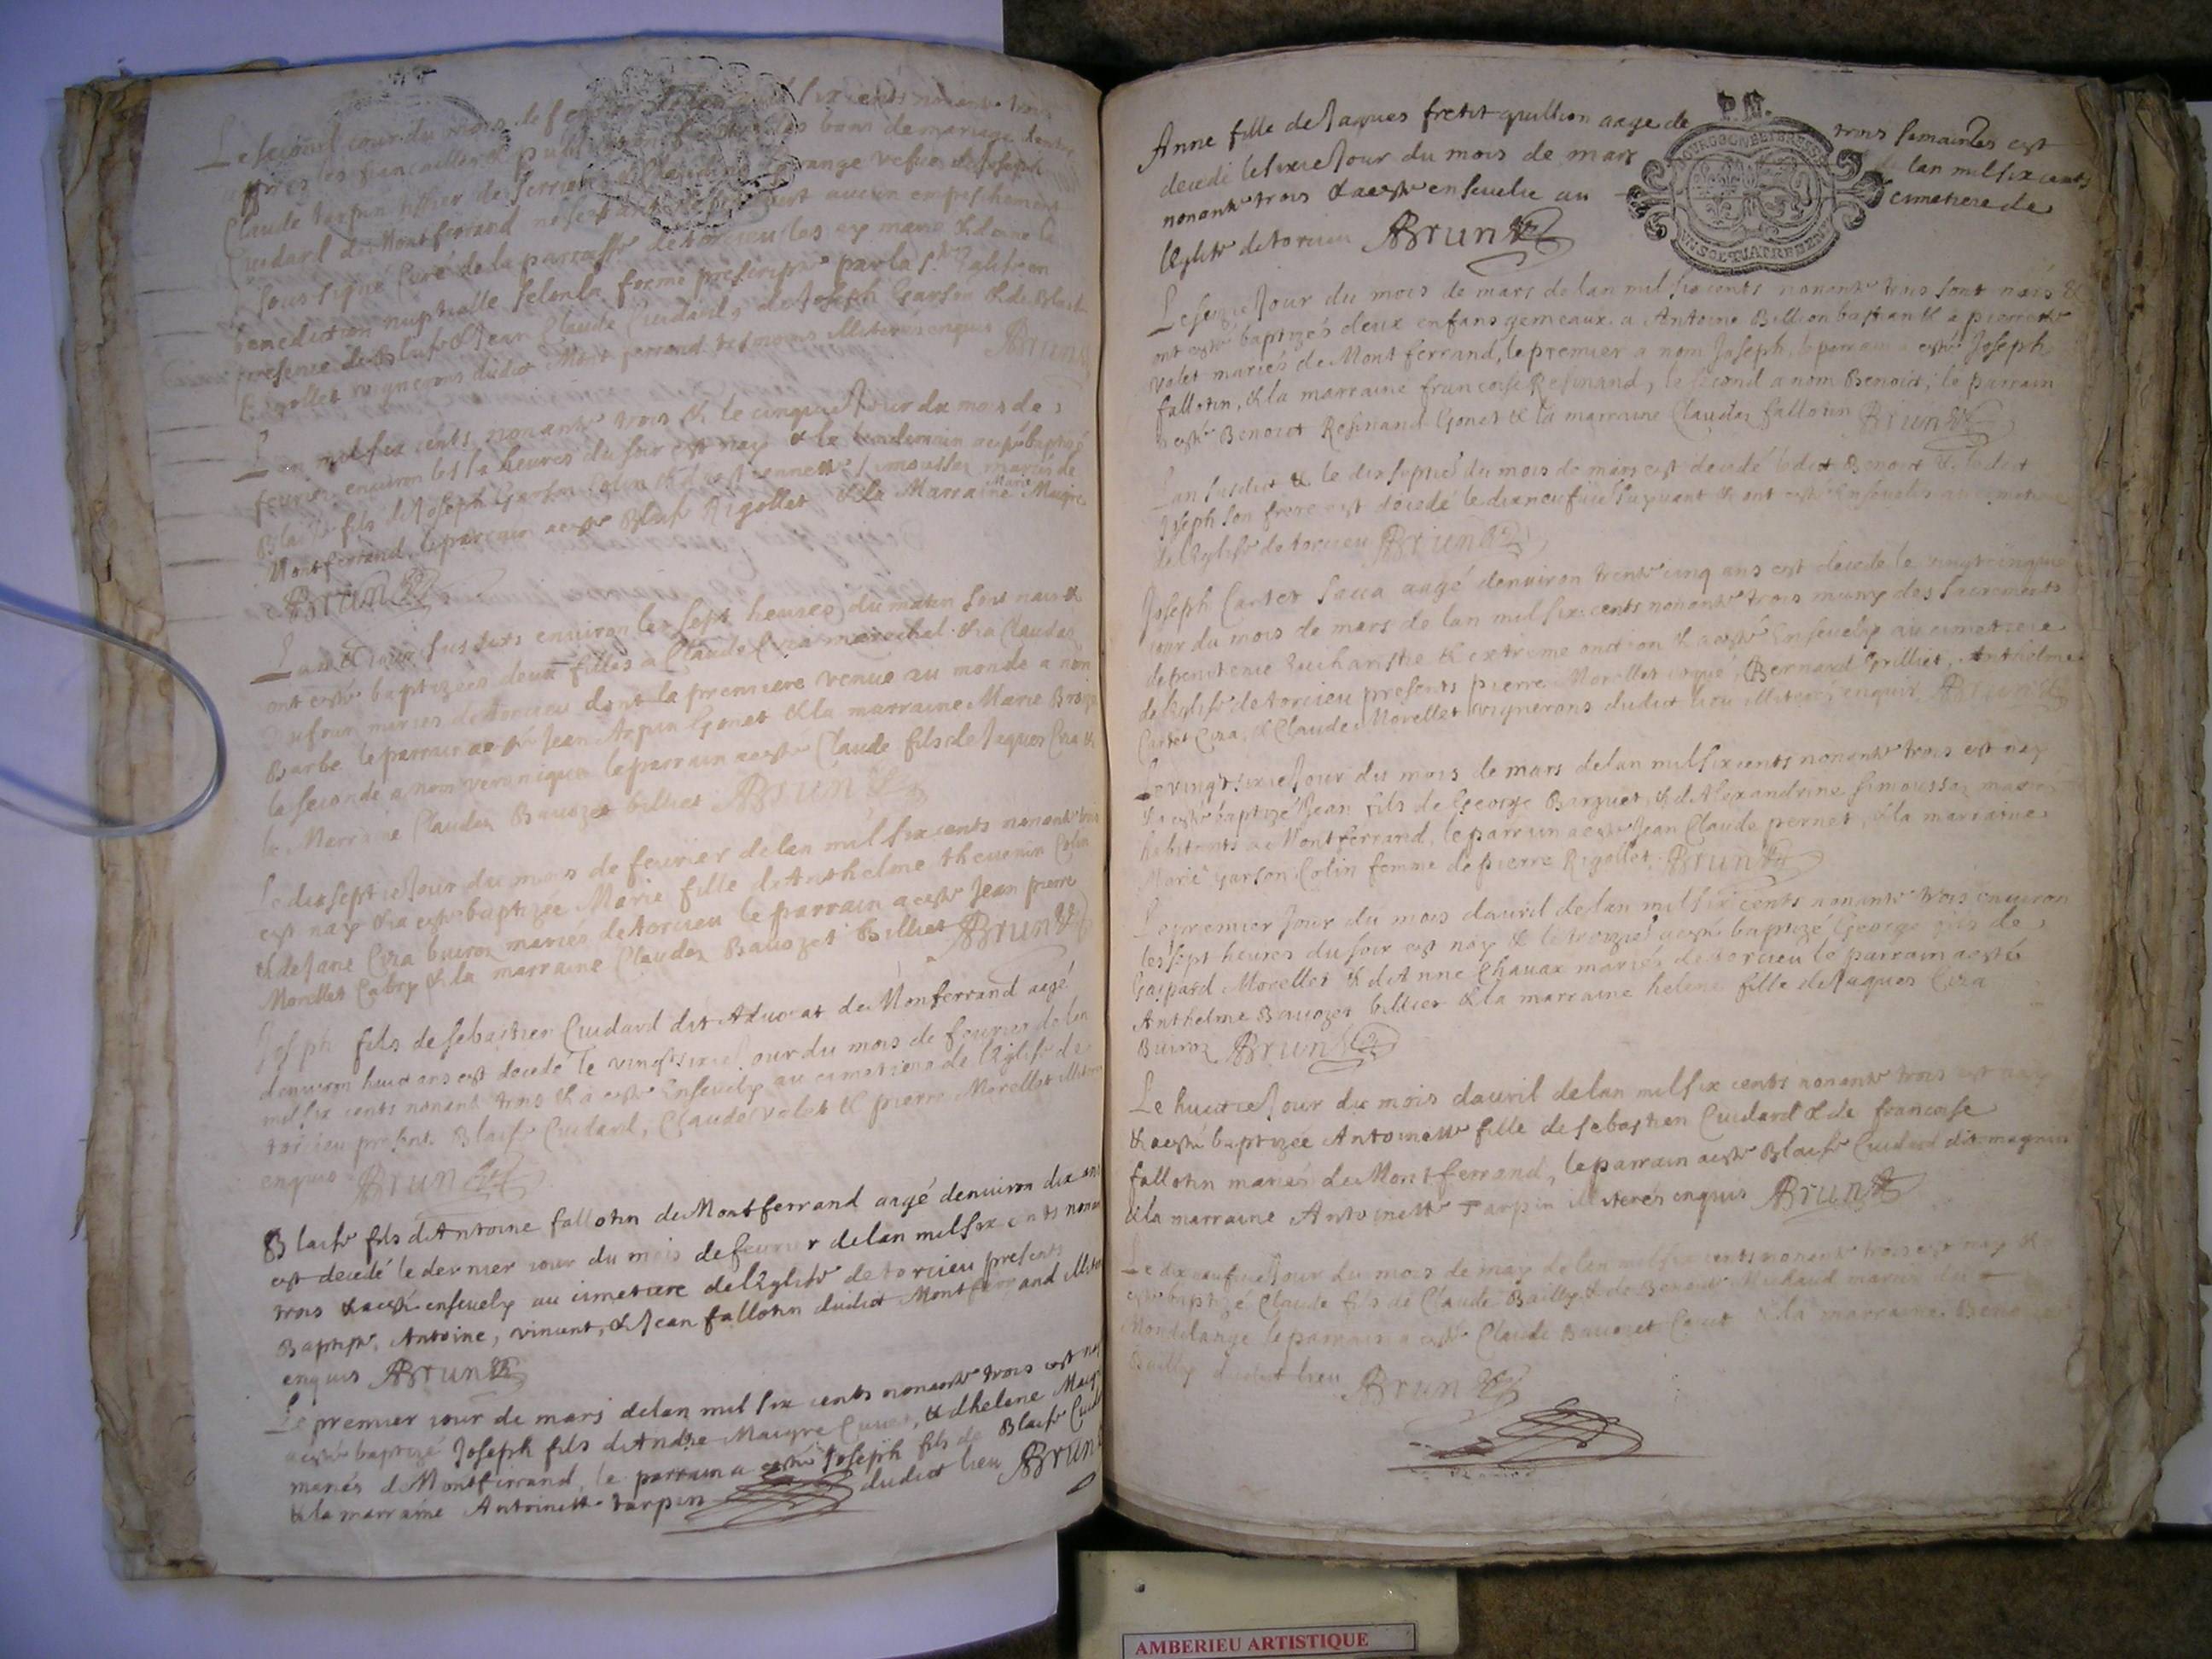 Le second jour du mois de feurier six cents nonante trois
apres les fiancailles & publication des bans de mariage d'entre
Claude tarpin de & Claudine grange vefue de Joseph
Cuidard de Montferrand ne sestant aucun empeschement
soussigné Curé de la parroisse de torcieu les ay mariés & donné la
benediction nuptialle selon la forme prescripte par la Ste Eglise en
presence de Blaise & Jean Claude Cuidard, de Joseph Garson & de Blaise
Rigollet vignerons dudict Mont ferrand tesmoins illiteres enquis Brun
Lan mil six cents nonante trois & le cinquie Jour du mois de
feurier enuiron les heures du soir est nay & le lendemain a esté baptizé
Blaise fils de Joseph Garson Colin & d'estiennette Simousset mariés de
Montferrand, le parrain a esté Blaise Rigollet & la Marraine Marie Maigre
Brun
Lan & jour susdits enuiron les sept heures du matin sont nais &
ont esté baptizées deux filles a Claude Cira marechal & a Claudaz
Dufrun mariés de torcieu dont la premiere venue au monde a nom
Barbe le parrain a esté Jean Arpin Gonet & la marraine Marie
la seconde a nom veronique le parrain a esté Claude fils de Jaques Cira &
la Marraine Claudaz Bauozet billiet Brun
Le dixseptie Jour du mois de feurier de lan mil six cents nonante trois
est nay & a esté baptizée Marie fille d'Anthelme theuenin Colin
& de Jane Cira buiroz mariés de torcieu le parrain a esté Jean pierre
Morellet Cabry & la marraine Claudaz Bauozet Billiet Brun
Joseph fils de sebastien Cuidard dit Aduocat de Monferrand aagé
denuiron huict ans est decedé le vingt sixie Jour du mois de feurier de lan
mil six cents nonante trois & a esté Enseuely au cimetiere de l'Eglise de
torcieu presents Blaise Cuidard, Claude volet & pierre Morellet illiteres
enquis Brun
Blaise fils d'Antoine fallotin de Montferrand aagé denuiron dix ans
est decedé le dernier jour du mois de feurier de lan mil six cents nonante
trois & a esté enseuely au cimetiere de l'Eglise de torcieu presents
Baptiste, Antoine, vincent, & Jean fallotin dudict Montferrand illiteres
enquis Brun
Le premier jour de mars de lan mil six cents nonante trois est nay
a esté baptizé Joseph fils d'Andre Maigre Cuivet, & d'helene Maigre
mariés d Montferrand, le parrain a esté Joseph fils de Blaise Cuidard
& la marraine Antoinette tarpin dudict lieu Brun
Anne fille de Jaques fretit quillion aage de trois semaines est
decedé le sixie Jour du mois de mars lan mil six cents
nonante trois & a esté enseuelie au cimetiere de
l'Eglise de torcieu Brun
P. M.
BOURGOGNE ET BRESSE
UN SOL QUATRE DEN
Le seizie Jour du mois de mars de lan mil six cents nonante trois sont nais &
ont esté baptizés deux enfans gemeaux a Antoine Billion bastian & a pierrette
volet mariés de Mont ferrand, le premier a nom Joseph, le parrain a esté Joseph
fallotin, & la marraine francoise Resinand, le second a nom Benoict, le parrain
a esté Benoict Resinand Gonet & la marraine Claudaz fallotin Brun
Lan susdict & le dixseptie du mois de mars est decedé ledict Benoict & ledict
Joseph son frere est decedé le dixneufuie suyuant & ont esté Enseuelis au cimetiere
de l'Eglise de torcieu Brun
Joseph Cartet Sacca aagé denuiron trente cinq ans est decedé le vingtcinquie
jour du mois de mars de lan mil six cents nonante trois muny des sacrements
de penitence Eucharistie & extreme onction & a esté Enseuely au cimetiere
de l'Eglise de torcieu presents pierre Morellet, Bernard Grilliet, Anthelme
Cartet Cira, & Claude Morellet vignerons dudict lieu illiteres enquis Brun
Le vingt sixie Jour du mois de mars de lan mil six cents nonante trois est nay
& a esté baptizé Jean fils de George Barguet, & d'Alexandrine Simousset mariés
habitants a Montferrand, le parrain a esté Jean Claude pernet, & la marraine
Marie Garson Colin femme de pierre Rigollet. Brun
Le premier Jour du mois dauril de lan mil six cents nonante trois enuiron
les sept heures du soir est nay & le troizie a esté baptizé George fils de
Gaspard Morellet & d'Anne Chauax mariés de torcieu le parrain a esté
Anthelme Bauozet billiet & la marraine helene fille de Jaques Cira
Buiroz Brun
Le huictie Jour du mois dauril de lan mil six cents nonante trois est nay
& a esté baptizée Antoinette fille de sebastien Cuidard & de francoise
fallotin mariés de Montferrand, le parrain a esté Blaise Cuidard dit magnin
& la marraine Antoinette Tarpin illiterés enquis Brun
Le dixneufuie Jour du mois de may de lan mil six cents nonante trois est nay &
esté baptizé Claude fils de Claude Bailly & de Benoite mariés du
Mondelange le parrain a esté Claude Bauozet Cocut & la marraine Benoite
Bailly dudict lieu Brun
AMBERIEU ARTISTIQUE